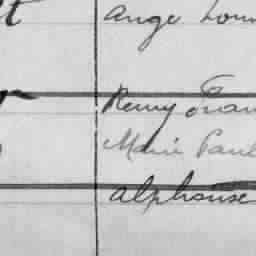 Ange Loui
Remy Fran
Marie Paul
Alphonse